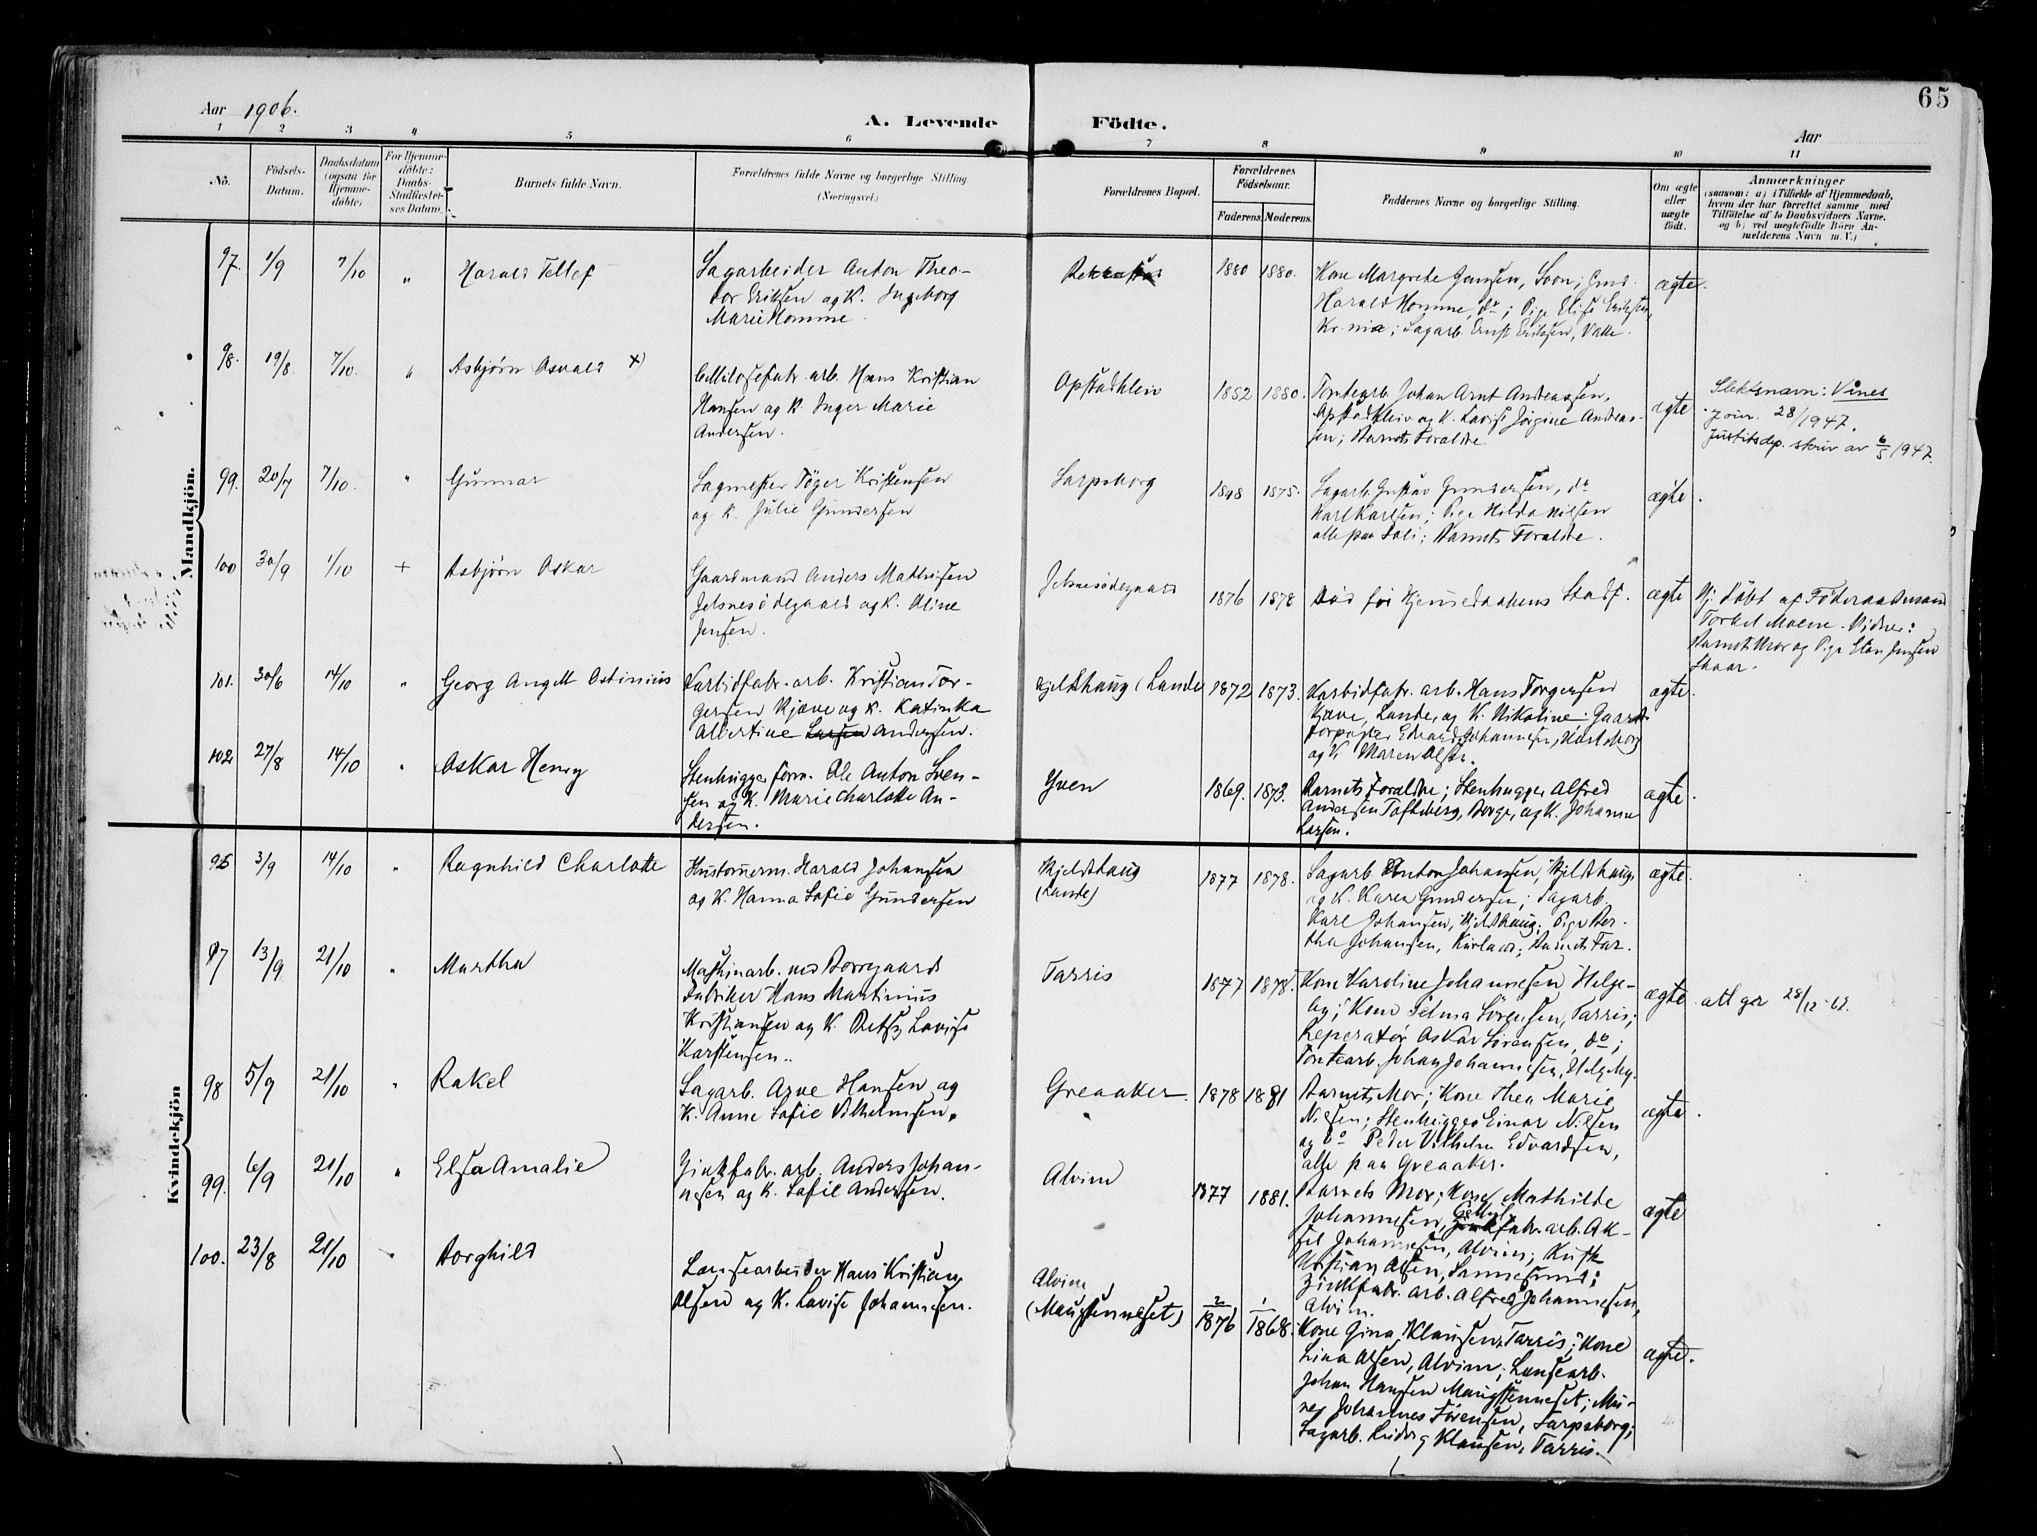 65
Aar 1906.
A. Levende Födte.
Aar
1 2 3 4 5 6 7 8 9 10 11
Nö.
Födsels-
Datum.
Daabsdatum
(ogsaa for
Hjemme-
döbte)
For Hjemme-
döbte:
Daabs-
Stadfæstel-
ses Datum.
Barnets fulde Navn.
Forældrenes fulde Navne og borgerlige Stilling.
(Næringsvei.)
Forældrenes Bopæl.
Forældrenes
Födselsaar.
Faderens. Moderens.
Faddernes Navne og borgerlige Stilling.
Om ægte
eller
uægte
födt.
Anmærkninger
(saasom: a) i Tilfælde af Hjemmedaab,
hvem der har forrettet samme med
Tilföielse af to Daabsvidners Navne,
og b) ved uægtefödte Börn An-
melderens Navn m. V.)
Mandkjön.
97. 1/9 7/10 " Harald Tellef
Sagarbeider Anton Theo-
dor Eriksen og K. Ingeborg
Marie Homme.
1880 1880.
Kone Margrethe Jensen, Soon; Gmd.
Harald Homme, do; Pige Elise Eriksen,
Kr.nia; Sagarb. Ernst Eriksen, Valle.
ægte.
98. 19/8 7/10. " Asbjørn Osvald x)
Cellulosefabr. arb. Hans Kristian
Hansen og K. Inger Marie
Andersen.
Opstadkleiv
1882 1880.
Tomtearb. Johan Arnt Andreassen,
Opstadkleiv og K. Lovise Jørgine Andreas-
sen; Barnets Foraldre
ægte
Slektsnavn: Vines
28/1947.
Justitsdep. skriv av 6/5 1947.
99. 20/7 7/10. " Gunnar
Sagmester Töger Kristensen
og K. Julie Gundersen
Sarpsborg
1848 1875.
Sagarb. Gustav Gundersen, do
Karl Karlsen; Pige Hilda Nilsen
alle paa Soli; Barnets Foraldre.
ægte.
100 30/9 1/10 + Asbjørn Oskar
Gaardmand Anders Mathisen
Jelsnesödegaard og K. Oline
Jensen.
Jelsnesödegaard
1876 1878
Död før Hjemmedaabens Stadf.
ægte
Hj. döbt af Föderaadsmand
Torkel Moene. Vidner:
Barnets Mor og Pige Jensen
Skaar.
101. 30/6 14/10 " Georg Angell Ostinius
Karbidfabr. arb. Kristian Tor-
gersen Kjøve og K. Katinka
Albertine Larsen Andersen.
Kjeldshaug (Lande
1872 1873.
Karbidfabr. arb. Hans Torgersen
Kjøve, Lande, og K. Nikoline; Gaard-
forpagter Edvard Johannesen, Karlsborg
og K. Maren Olsen.
ægte.
102 27/8 14/10 " Oskar Henry
Stenhugger form. Ole Anton Sven-
sen og K. Marie Charlotte An-
dersen.
Yven
1869. 1873.
Barnets Foraldre; Stenhugger Alfred
Andersen Tofteberg, Borge, og K. Johanne
Larsen.
ægte.
Kvindekjön
96 3/9 14/10 " Ragnhild Charlotte
Hustømerm. Harald Johansen
og K. Hanna Sofie Gundersen
Kjeldshaug
(Lande)
1877 1878.
Sagarb. Anton Johansen, Kjeldshaug,
og K. Karen Gundersen; Sagarb.
Karl Johansen, Kjeldshaug; Pige Ber-
tha Johansen, Barnets Far.
ægte.
97 13/9 21/10 " Martha
Maskinarb. ved Borregaards
Fabriker Hans Martinius
Kristiansen og K. Betsy Lovise
Karstensen.
Tarris
1877 1878.
Kone Karoline Johannesen Helge-
by; Kone Selma Sörensen, Tarris;
Reparatør Oskar Sörensen, do;
Tomtearb. Johan Johannesen, Helgeby.
ægte.
att gr 28/12-62.
98 5/9 21/10 " Rakel
Sagarb. Arve Hansen og
K. Anne Sofie Vilhelmsen.
Greaaker.
1878 1881
Barnets Mor; Kone Thea Marie
Nilsen; Stenhugger Einar Nilsen
og do Peder Vilhelm Edvardsen,
alle paa Greaaker.
ægte.
99. 6/9 21/10 " Elsa Amalie
Zinkfabr. arb. Anders Johan-
nesen og K. Sofie Andersen.
Alvim
1877 1881.
Barnets Mor; Kone Mathilde
Johannesen, Cellul. Zinkfabr. arb. Ak-
sel Johannesen, Alvim; Kusk
Kristian Olsen, Sannesund;
Zinkfabr. arb. Alfred Johannesen,
Alvim.
ægte
100. 23/8 21/10 " Borghild
Lænsearbeider Hans Kristian
Olsen og K. Lovise Johannesen.
Alvim
(Maugstenneset)
2/1876 1/1868.
Kone Gina Klausen, Tarris; Kone
Lina Olsen, Alvim; Lensearb.
Johan Hansen Maugstenneset; Mu-
rer Johannes Sörensen, Sarpsborg;
Sagarb. Ludvig Klausen, Tarris.
ægte.